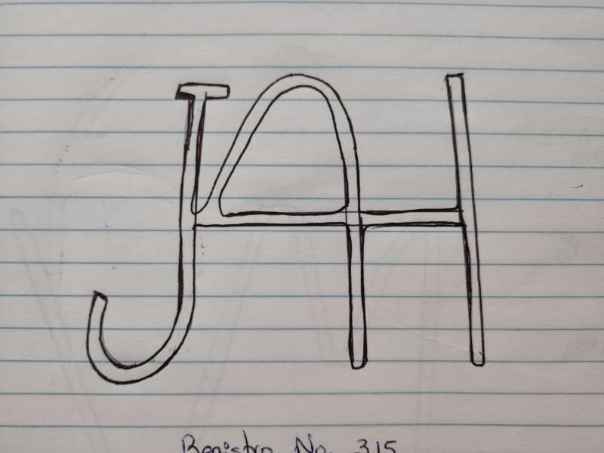 JAH
Registro No. 315